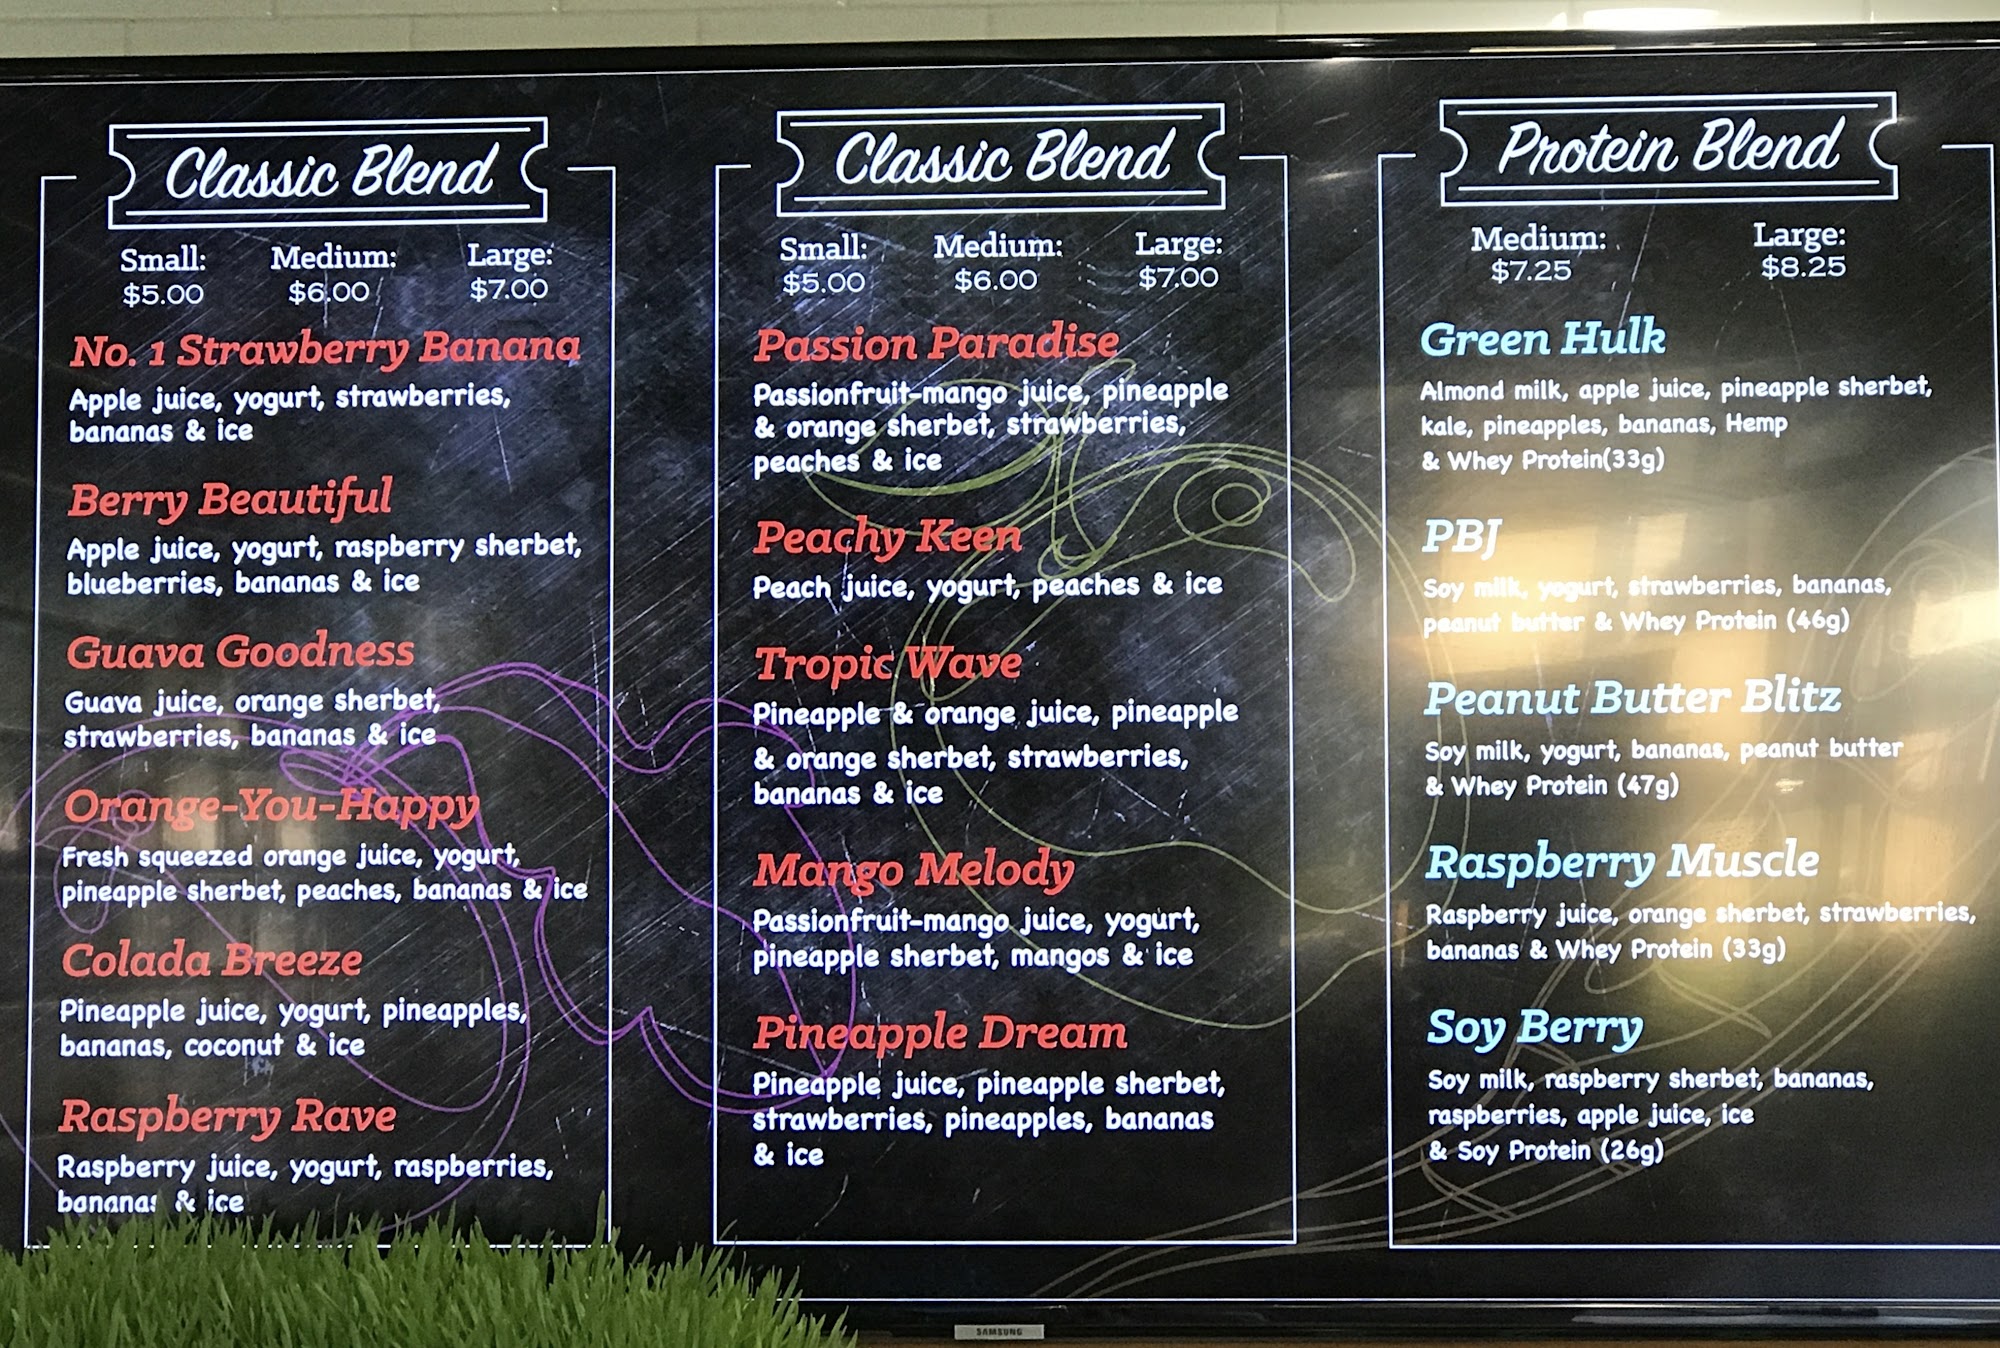 Classic Blend
Small: Medium: Large:
$5.00 $6.00 $7.00
No. 1 Strawberry Banana
Apple juice, yogurt, strawberries,
bananas & ice
Berry Beautiful
Apple juice, yogurt, raspberry sherbet,
blueberries, bananas & ice
Guava Goodness
Guava juice, orange sherbet,
strawberries, bananas & ice
Orange-You-Happy
Fresh squeezed orange juice, yogurt,
pineapple sherbet, peaches, bananas & ice
Colada Breeze
Pineapple juice, yogurt, pineapples,
bananas, coconut & ice
Raspberry Rave
Raspberry juice, yogurt, raspberries,
bananas & ice
Classic Blend
Small: Medium: Large:
$5.00 $6.00 $7.00
Passion Paradise
Passionfruit-mango juice, pineapple
& orange sherbet, strawberries,
peaches & ice
Peachy Keen
Peach juice, yogurt, peaches & ice
Tropic Wave
Pineapple & orange juice, pineapple
& orange sherbet, strawberries,
bananas & ice
Mango Melody
Passionfruit-mango juice, yogurt,
pineapple sherbet, mangos & ice
Pineapple Dream
Pineapple juice, pineapple sherbet,
strawberries, pineapples, bananas
& ice
Protein Blend
Medium: Large:
$7.25 $8.25
Green Hulk
Almond milk, apple juice, pineapple sherbet,
kale, pineapples, bananas, Hemp
& Whey Protein(33g)
PBJ
Soy milk, yogurt, strawberries, bananas,
peanut butter & Whey Protein (46g)
Peanut Butter Blitz
Soy milk, yogurt, bananas, peanut butter
& Whey Protein (47g)
Raspberry Muscle
Raspberry juice, orange sherbet, strawberries,
bananas & Whey Protein (33g)
Soy Berry
Soy milk, raspberry sherbet, bananas,
raspberries, apple juice, ice
& Soy Protein (26g)
SAMSUNG